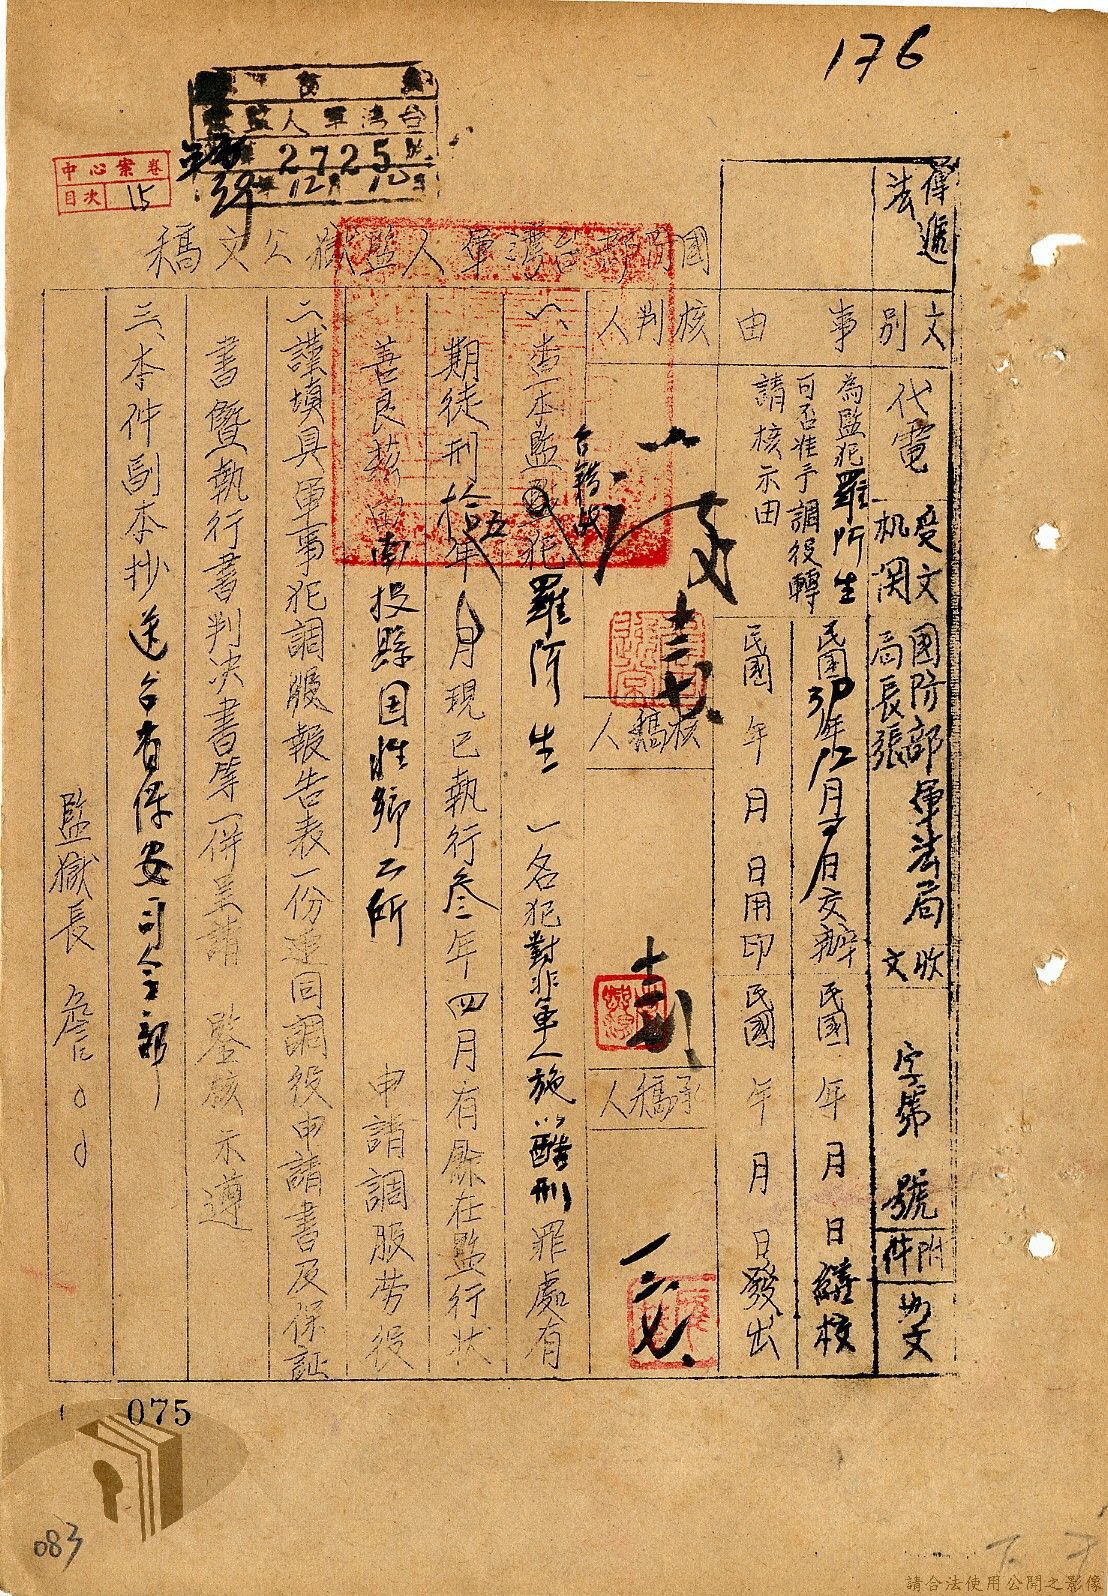 176
台灣軍人監
2725
12月10日
中心案卷
目次 15
國防部台灣軍人監獄公文稿
傳遞法
文別 代電
受文機関 國防部軍法局局長張
收文 字第 號
附件 如文
事由
為監犯羅阿生
可否准予調役轉
請核示由
民國39年12月 日交辦
民國 年 月 日繕校
民國 年 月 日用印
民國 年 月 日發出
核判人
核稿人
承稿人
一、查本監台籍犯羅阿生一名犯對非軍人施以酷刑罪處有
期徒刑拾五年 月現已執行叁年四月有餘在監行狀
善良 南投縣国姓鄉 所 申請調服劳役
二、謹填具軍事犯調服報告表一份連同調役申請書及保証
書暨執行書判決書等一併呈請 鑒核示遵
三、本件副本抄送台省保安司令部
監獄長 詹〇〇
075
083
請合法使用公開之影像